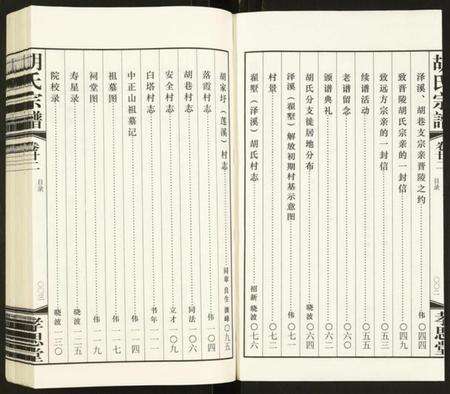 胡氏宗譜 卷廿二 目录 孝思堂
泽溪、胡巷支宗亲晋陵之约 伟 〇四四
致晋陵胡氏宗亲的一封信 伟 〇四九
致远方宗亲的一封信
续谱活动 〇五五
老谱留念 〇六二
颁谱典礼
胡氏分支徙居地分布 晓波 〇六四
泽溪（翟墅）解放初期村基示意图 〇七一
村景 〇七二
翟墅（泽溪）胡氏村志 绍新 晓波 〇七六
胡家圩（莲溪）村志 〇九五
落霞村志 伟 一〇四
胡巷村志 同法 一〇六
安全村志 立才 一〇九
白塔村志 书年 一一二
中正山祖墓记 伟 一一四
祖墓图 伟 一一七
祠堂图 伟 一一九
寿星录 晓波 一二五
院校录 晓波 一三〇
胡氏宗譜 卷廿二 目录 孝思堂